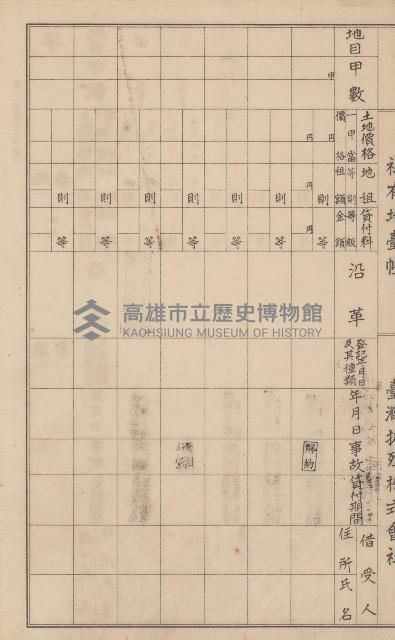 社有地臺帳
臺灣拓殖株式會社
地目甲數
甲
土地價格
一甲當
價格
円
円
地租
等則
租額
則
等
円
貸付料
等級
金額
円
則 則 則 則 則 則
等 等 等 等 等 等
沿革
登記年月日
及其種類
年月日
事故
貸付期間
借受人
住所氏名
解約
高雄市立歷史博物館
KAOHSIUNG MUSEUM OF HISTORY